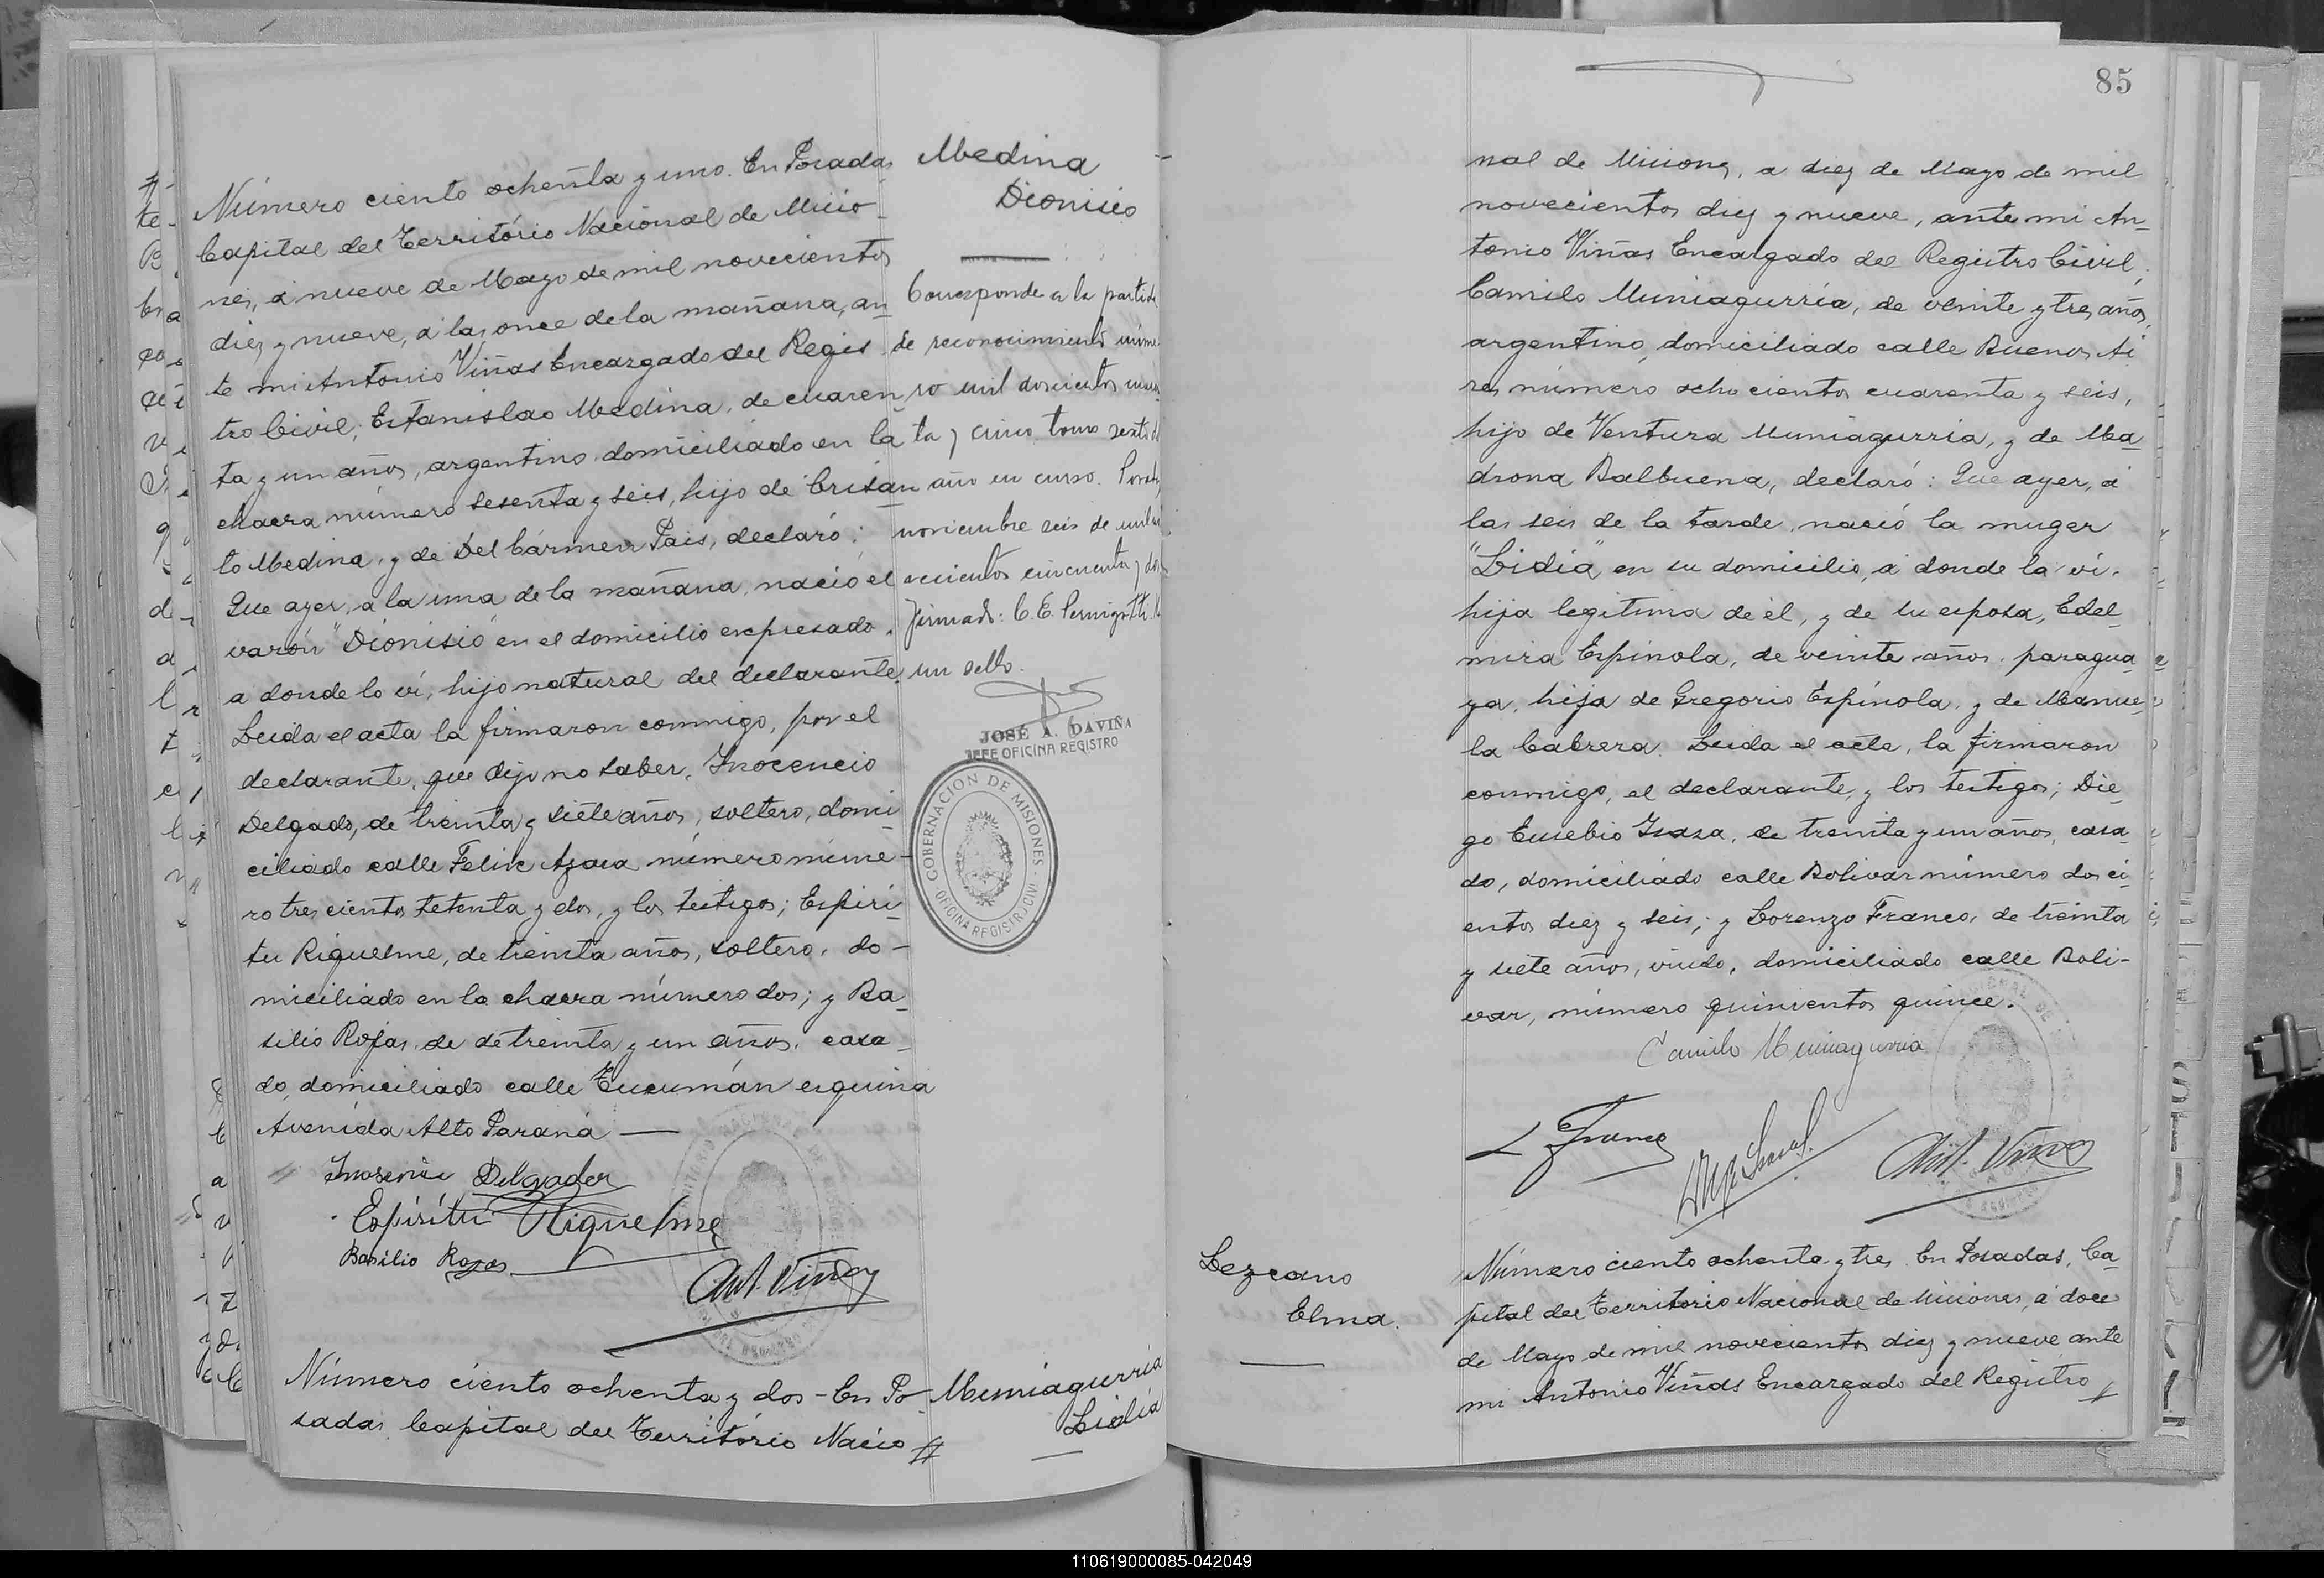 Número ciento ochenta y uno. En Posadas
Capital del Território Nacional de Misio-
nes, á nueve de Mayo de mil novecientos
diez y nueve, á las once de la mañana, an-
te mi Antonio Viñas Encargado del Regis-
tro Civil; Estanislao Medina, de cuaren-
ta y un años, argentino domiciliado en la
chacra número sesenta y seis, hijo de Crisan-
to Medina, y de Del Cármen Pais, declaró:
Que ayer, a la una de la mañana, nació el
varón "Dionisio" en el domicilio expresado,
a donde lo ví, hijo natural del declarante.
Leida el acta la firmaron conmigo, por el
declarante, que dijo no saber, Inocencio
Delgado, de treinta y siete años, soltero, domi-
ciliado calle Felix Azara número núme-
ro tres cientos setenta y dos, y los testigos; Espiri-
tu Riquelme, de treinta años, soltero, do-
miciliado en la chacra número dos; y Ba-
silio Rojas, de de treinta y un años, casa-
do, domiciliado calle Tucumán esquina
Avenida Alto Paraná —
Inosenio Delgader
Espíritu Riquelme
Basilio Rojas
Ant. Viñas
Número ciento ochenta y dos - En Po-
sadas Capital del Território Nacio #
Medina
Dionisio
Corresponde a la partida
de reconocimiento núme-
ro mil doscientos
ta y cinco tomo sexto
año en curso. Posadas
noviembre seis de mil
vecientos cincuenta y dos
firmado: C. E. Pernigotti.
un sello.
JOSÉ A. DAVIÑA
JEFE OFICINA REGISTRO
GOBERNACION DE MISIONES
OFICINA REGISTRO CIVIL
Muniagurria
Lidia
85
nal de Misiones, a diez de Mayo de mil
novecientos diez y nueve, ante mi An-
tonio Viñas Encargado del Registro Civil,
Camilo Muniagurria, de veinte y tres años,
argentino, domiciliado calle Buenos Ai
res número ocho cientos cuarenta y seis,
hijo de Ventura Muniagurria, y de Ma-
drona Balbuena, declaró: Que ayer, á
las seis de la tarde, nació la muger
"Lidia" en su domicilio, a donde la ví,
hija legitima de él, y de su esposa, Edel-
mira Espinola, de veinte años, paragua-
ya, hija de Gregorio Espínola, y de Manue-
la Cabrera. Leida el acta, la firmaron
conmigo, el declarante, y los testigos; Die-
go Eusebio Isasa, de treinta y un años, casa-
do, domiciliado calle Bolivar número dos ci-
entos diez y seis; y Lorenzo Franco, de treinta
y siete años, viudo, domiciliado calle Boli-
var, número quinientos quince.
Camilo Muniagurria
L Franco
Ant. Viñas
Lezcano
Elma.
Número ciento ochenta y tres. En Posadas, Ca-
pital del Territorio Nacional de Misiones, á doce
de Mayo de mil novecientos diez y nueve ante
mi Antonio Viñas Encargado del Registro #
110619000085-042049